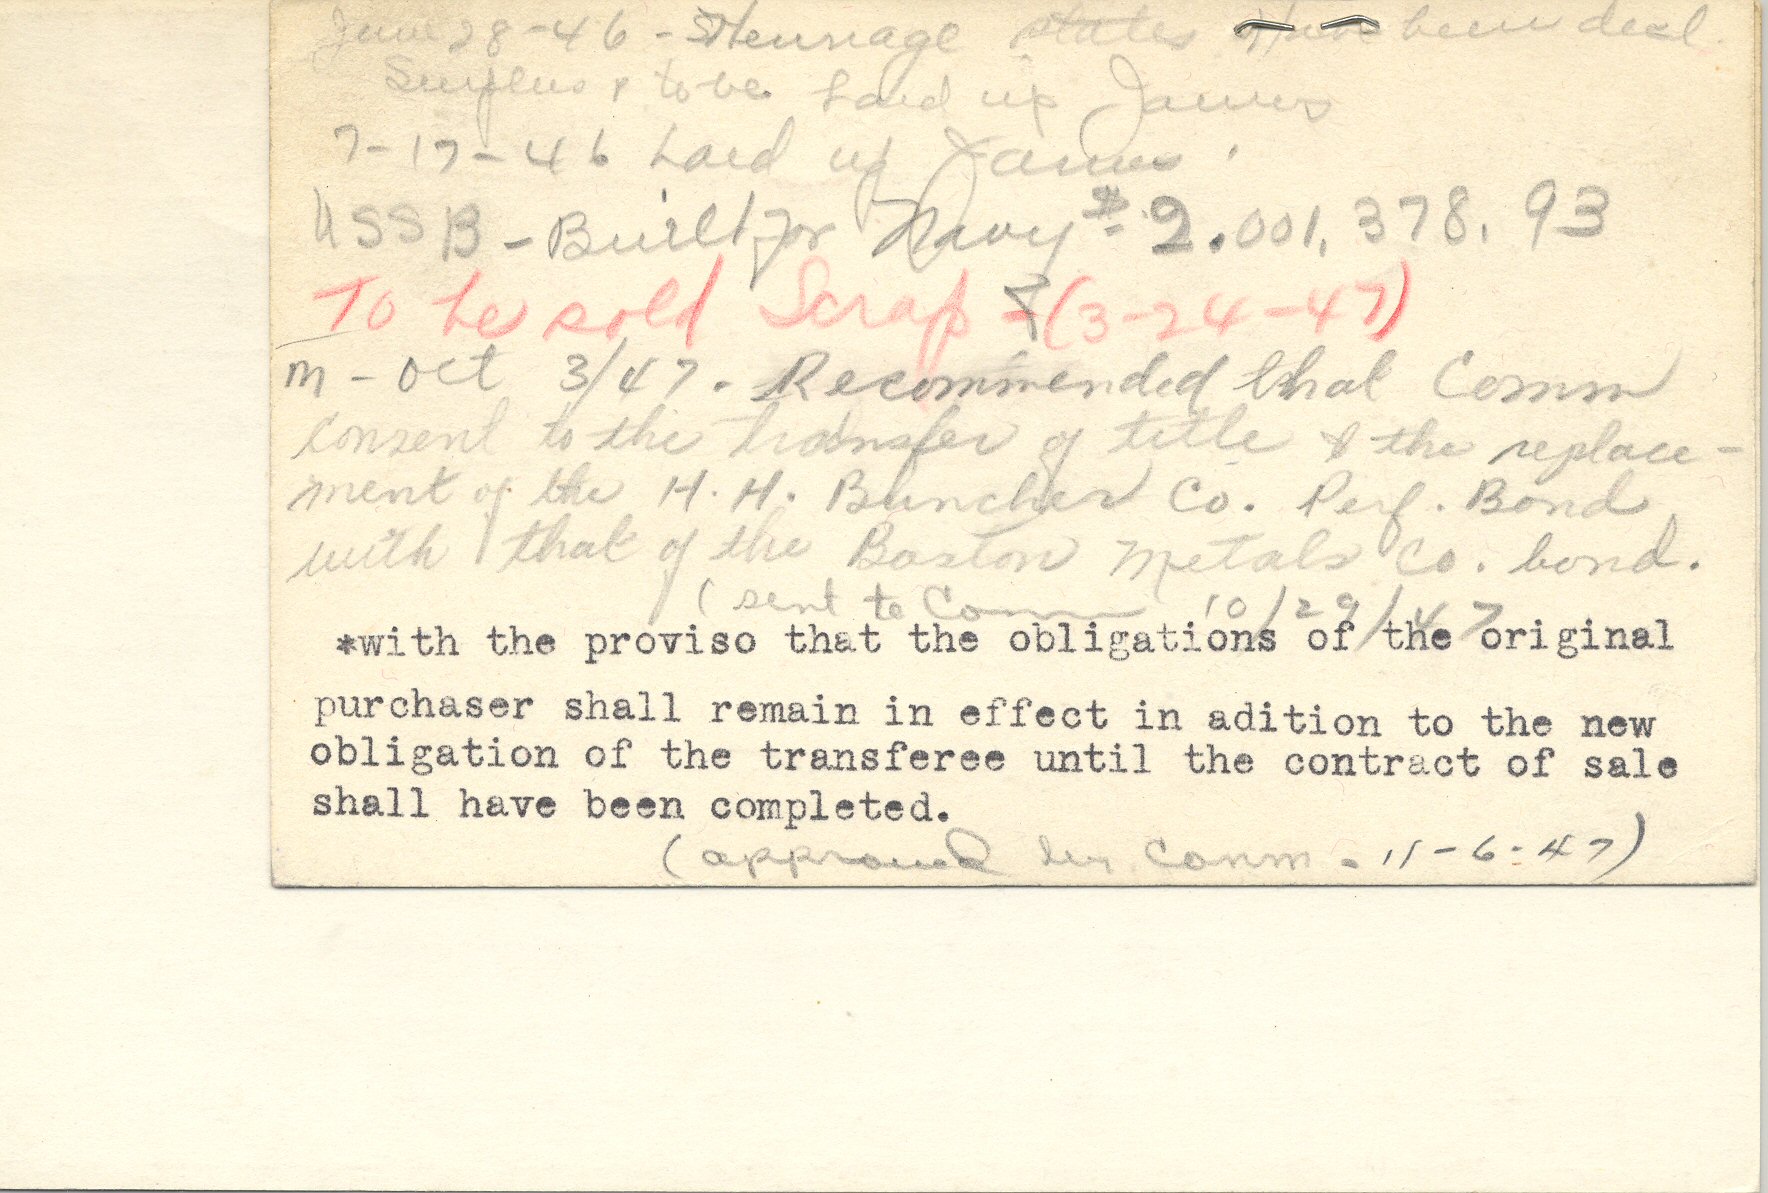 June 28-46 - states have been decl.
Surplus & to be Laid up James
7-17-46 Laid up James
USSB - Built for Navy $2.001,378.93
To be sold Scrap - (3-24-47)
m - Oct 3/47. Recommended that Comm
consent to the transfer of title & the replace-
ment of the H. H. Buncher Co. Perf. Bond
with that of the Boston Metals Co. bond.
(sent to Comm 10/29/47
*with the proviso that the obligations of the original
purchaser shall remain in effect in adition to the new
obligation of the transferee until the contract of sale
shall have been completed.
(approved by Comm - 11-6-47)